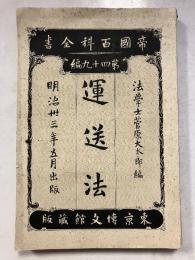 帝國百科全書
第四十九編
法學士菅原大太郎編
運送法
明治卅三年五月出版
東京博文館藏版